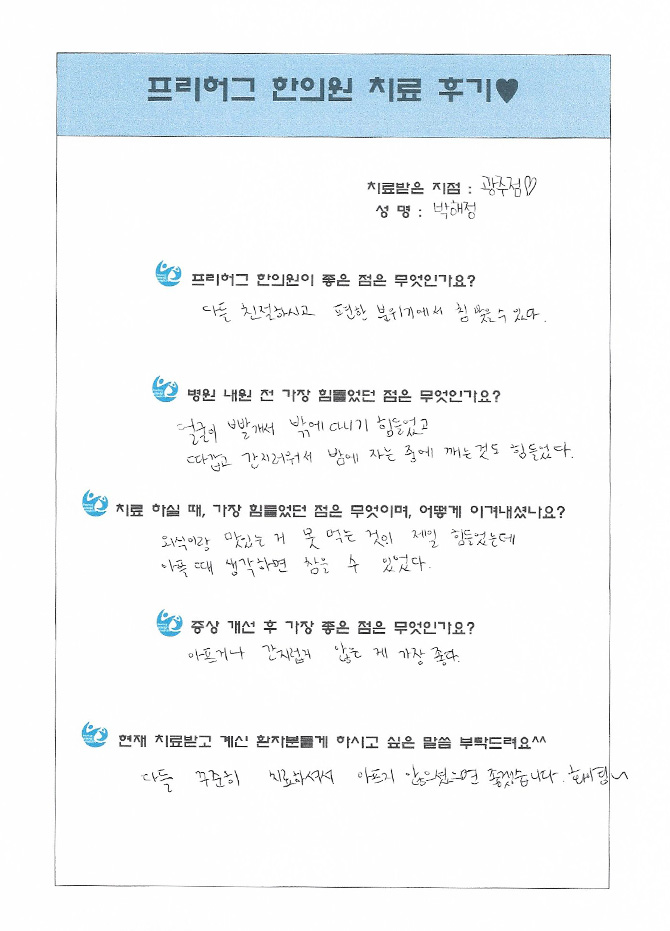 프리허그 한의원 치료 후기♥
치료받은 지점 : 광주점♡
성 명 : 박해정
프리허그 한의원이 좋은 점은 무엇인가요?
다들 친절하시고 편한 분위기에서 침 맞을 수 있다.
병원 내원 전 가장 힘들었던 점은 무엇인가요?
얼굴이 빨개서 밖에 다니기 힘들었고
따갑고 간지러워서 밤에 자는 중에 깨는것도 힘들었다.
치료 하실 때, 가장 힘들었던 점은 무엇이며, 어떻게 이겨내셨나요?
외식이랑 맛있는 거 못 먹는 것이 제일 힘들었는데
아플 때 생각하면 참을 수 있었다.
증상 개선 후 가장 좋은 점은 무엇인가요?
아프거나 간지럽지 않는 게 가장 좋다.
현재 치료받고 계신 환자분들게 하시고 싶은 말씀 부탁드려요^^
다들 꾸준히 치료하셔서 아프지 않으셨으면 좋겠습니다. 화이팅~